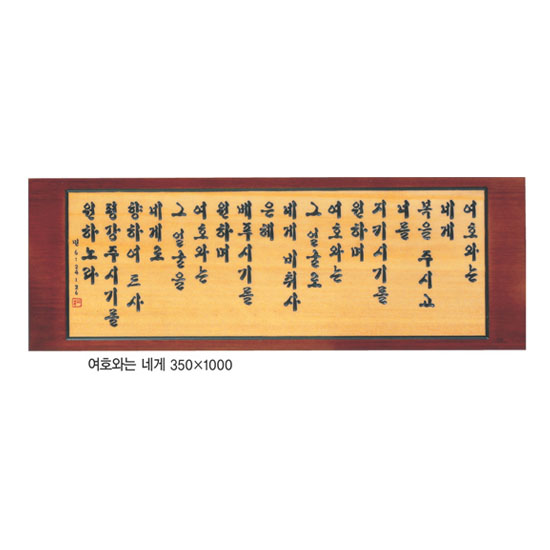 여호와는
네게
복을 주시고
너를
지키시기를
원하며
여호와는
그 얼굴로
네게 비취사
은혜
베푸시기를
원하며
여호와는
그 얼굴을
네게로
향하여 드사
평강주시기를
원하노라
민 6:24-26
여호와는 네게 350×1000